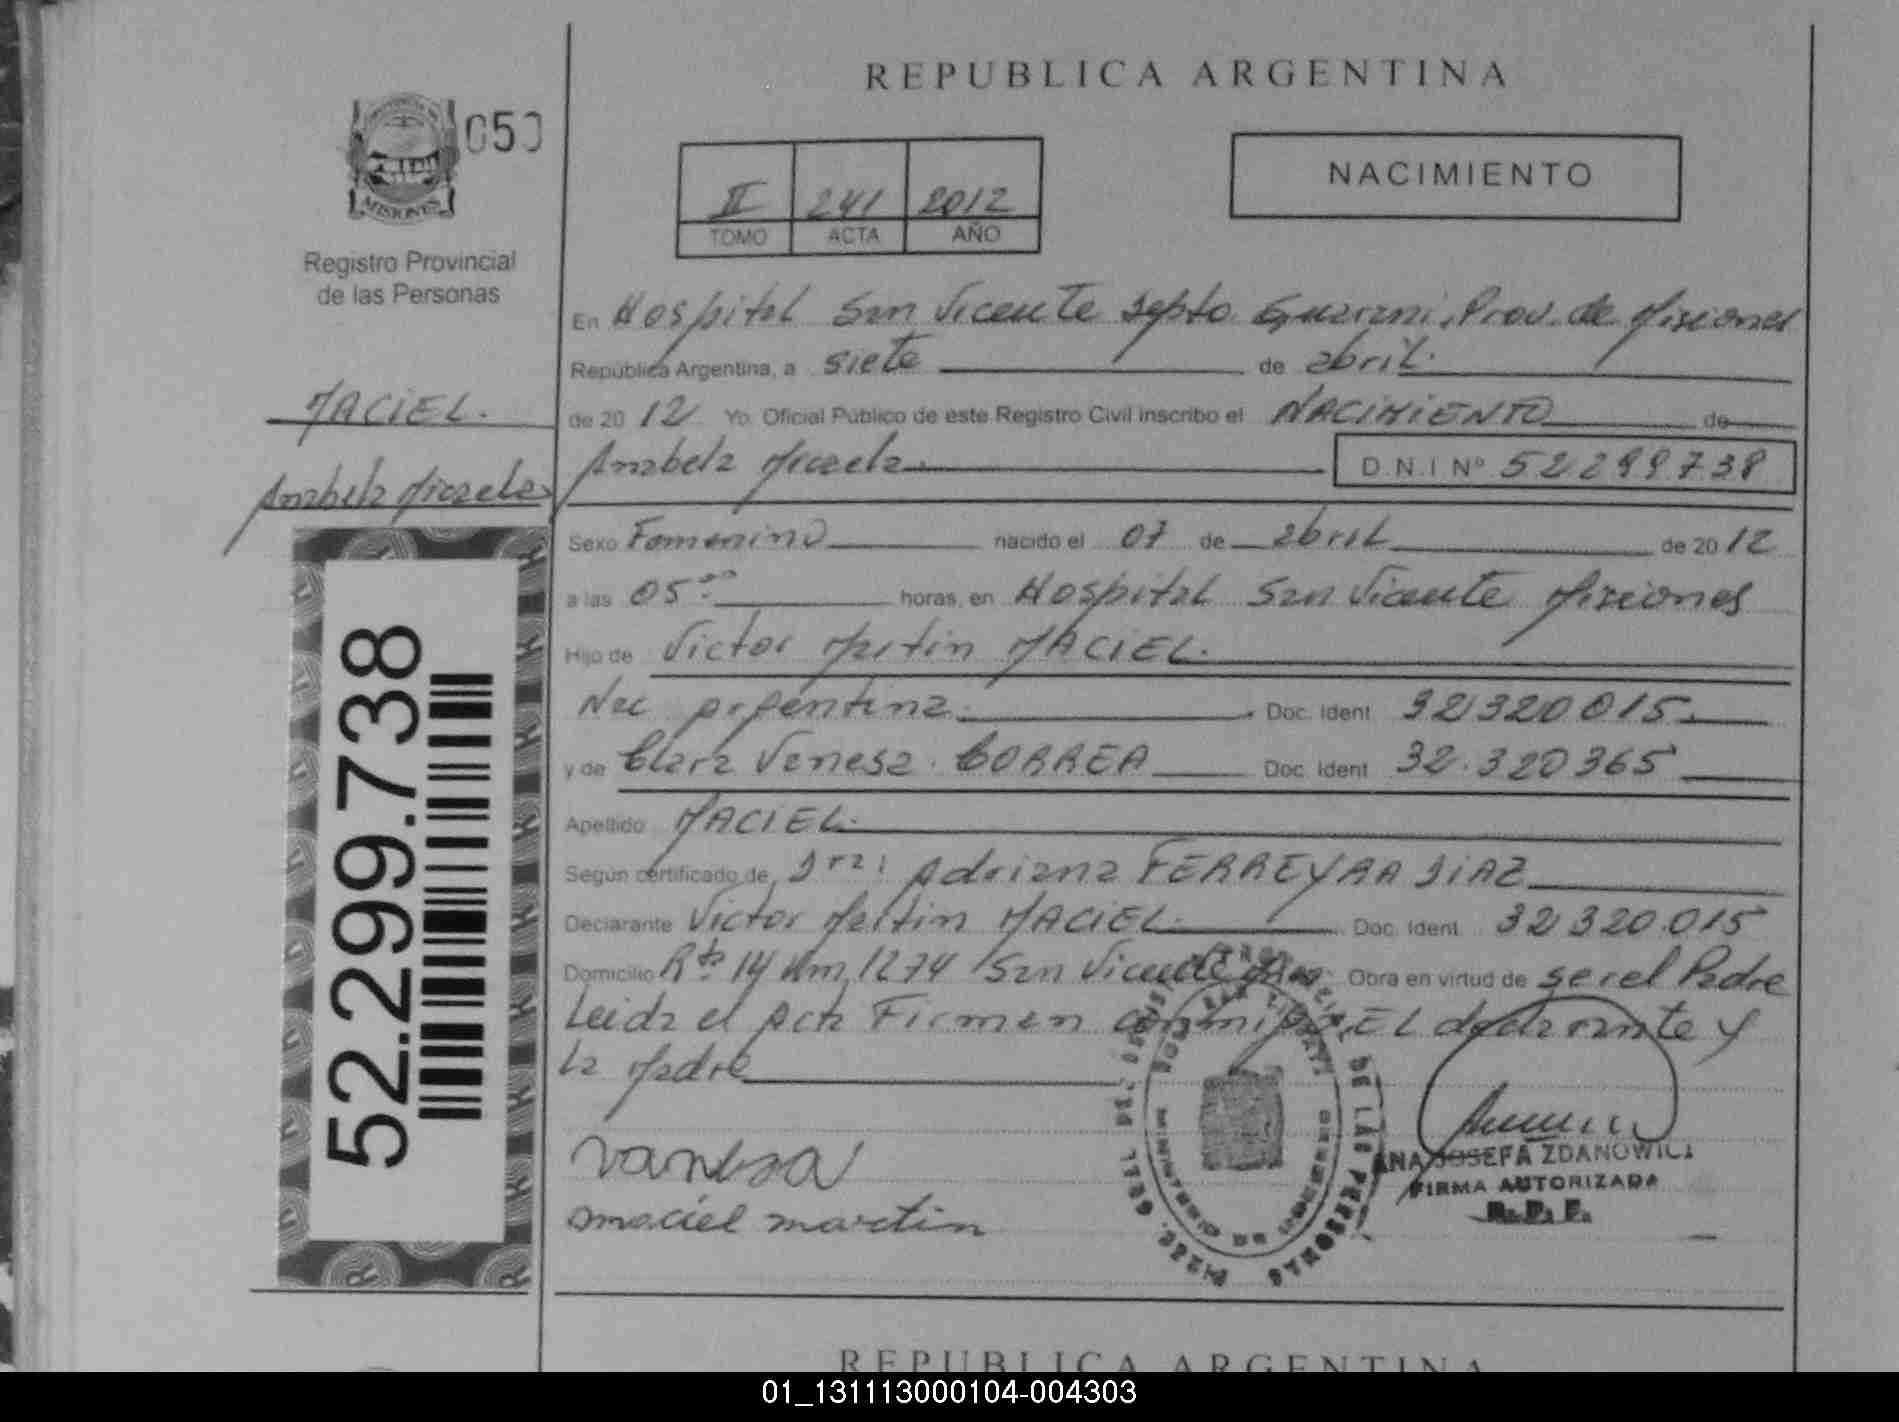 REPUBLICA ARGENTINA
050
MISIONES
Registro Provincial
de las Personas
II 241 2012
TOMO ACTA AÑO
NACIMIENTO
MACIEL.
Anabela Micaela
52.299.738
En Hospital San Vicente Depto Guarani, Prov. de Misiones
República Argentina, a siete de abril.
de 2012 Yo. Oficial Público de este Registro Civil inscribo el NACIMIENTO de
Anabela Micaela D.N.I Nº 52299738
Sexo Femenino nacido el 07 de abril de 2012
a las 05:00 horas, en Hospital San Vicente Misiones
Hijo de Victor Martin MACIEL.
Nac Argentina. Doc. Ident 32320015.
y de Clara Vanesa CORREA Doc. Ident 32.320365
Apellido MACIEL.
Según certificado de Dra: Adriana FERREYRA DIAZ
Declarante Victor Martin MACIEL. Doc. Ident 32320.015
Domicilio Rta 14 Km 1274 San Vicente Mnes. Obra en virtud de ser el Padre
Leida el Acta Firman conmigo, EL declarante y
La Madre
vanesa
maciel martin
DE LAS PERSONAS
ANA JOSEFA ZDANOWICZ
FIRMA AUTORIZADA
R.P.P.
REPUBLICA ARGENTINA
01_131113000104-004303